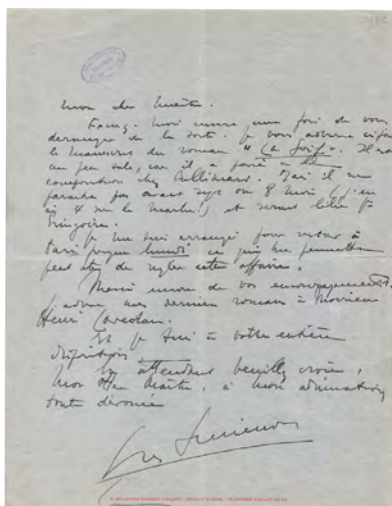 Mon cher Maître.
Excusez-moi encore une fois de vous
déranger de la sorte. Je vous adresse
le manuscrit du roman "La Soif". Il est
un peu sale, car il a passé à la
composition chez Gallimard. Mais il ne
paraîtra pas avant sept ou 8 mois (j'en
ai 4 sur le marbre!) et serait libre pr
Gringoire.
Je me suis arrangé pour rester à
Paris jusque lundi ce qui me permettra
peut-être de régler cette affaire.
Merci encore de vos encouragements.
J'adresse mes derniers romans à Monsieur
Henri
Et je suis à votre entière
disposition
En attendant veuillez croire,
Mon cher Maître, à mon admiration
toute dévouée
Simenon